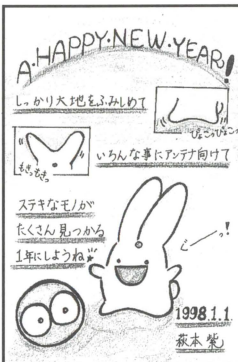 A・HAPPY・NEW・YEAR!
しっかり大地をふみしめて
ぴょこっぴょこっ
もきっもきっ
いろんな事にアンテナ向けて
ステキなモノが
たくさん見つかる
1年にしようね
じーっ!
1998.1.1.
萩本 紫